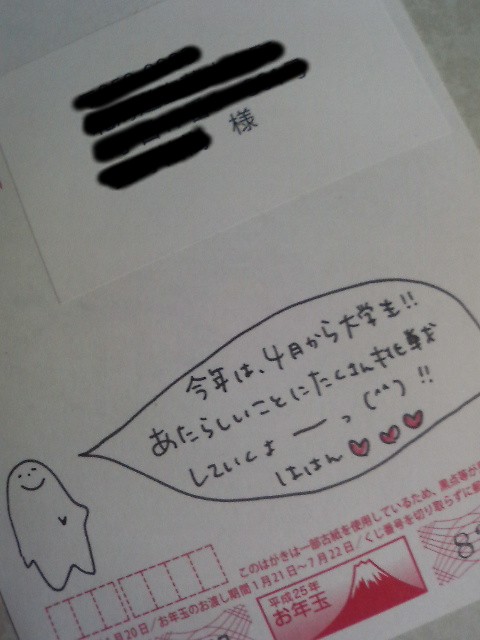 様
今年は、4月から大学生!!
あたらしいことにたくさん挑戦
していくよーっ(^^)!!
ははん
このはがきは一部古紙を使用しているため、黒点等が
1月20日/お年玉のお渡し期間1月21日〜7月22日/くじ番号を切り取らずに
平成25年
お年玉